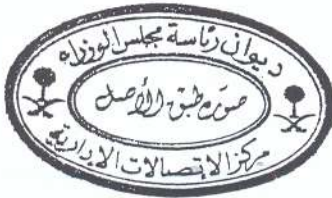 ديوان رئاسة مجلس الوزراء
صورة طبق الأصل
مركز الاتصالات الإدارية